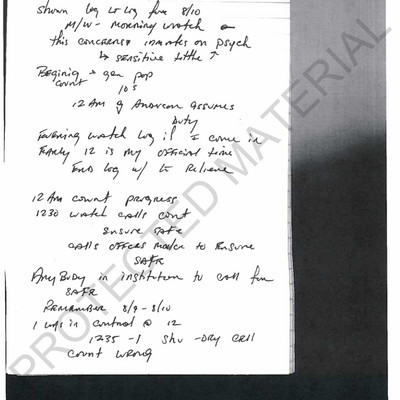 shown Log Lt Log for 8/10
M/W - Morning watch
this concerns inmates on psych
↳ sensitive little ↑
Begining + gen pop
count 10s
12 Am G Anderson assumes
Duty
Evening watch Log if I come in
Early 12 is my official time
End Log w/ Lt Relieve
12 Am count progress
1230 watch calls count
Ensure safe
calls officers make to Ensure
safe
Any Body in institution to call for
safe
Remember 8/9 - 8/10
I was in control @ 12
1235 - 1 Shu - Dry cell
count wrong
PROTECTED MATERIAL